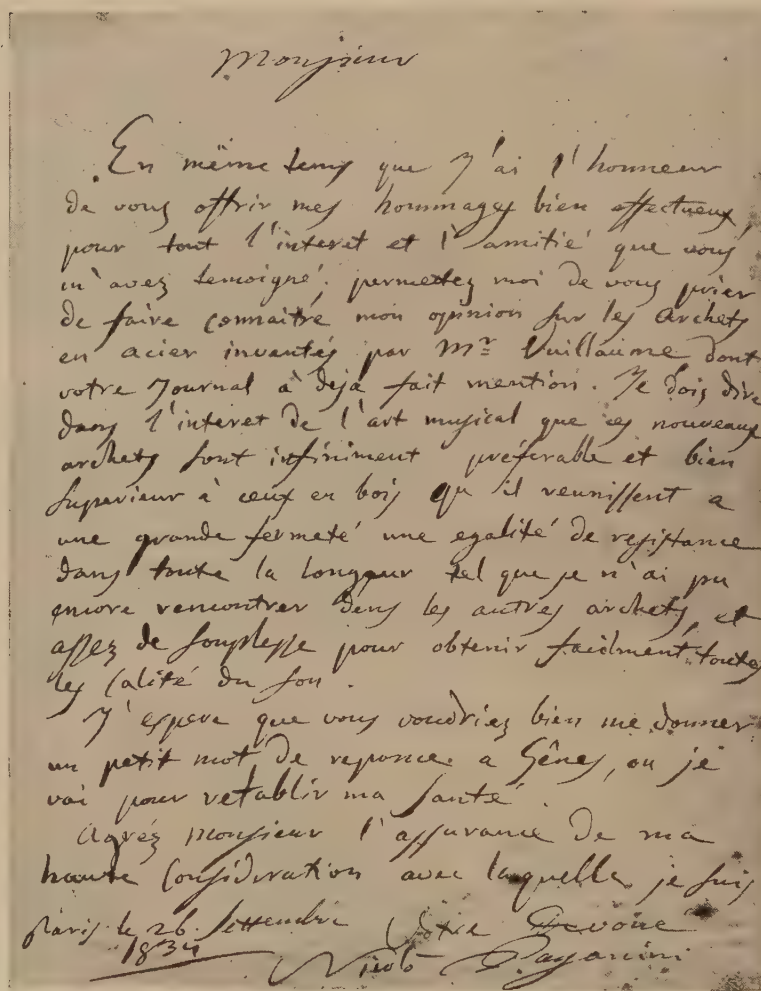 Monsieur
En même tems que J'ai l'honneur
de vous offrir mes hommages bien effectueux,
pour tout l'interet et l'amitié que vous
m'avez temoigné; permettez moi de vous prier
de faire connaitre mon opinion sur les Archets
en acier inventés par Mr Vuillaume dont
votre Journal à deja fait mention. Je dois dire
dans l'interet de l'art musical que ces nouveaux
archets sont infiniment préferable et bien
superieur à ceux en bois qu'il reunissent a
une grande fermeté une egalité de resistance
dans toute la longeur tel que je n'ai pu
encore rencontrer dens les autres archets, et
assez de souplesse pour obtenir facilment toutes
les calité du son.
J'espere que vous voudriez bien me donner
un petit mot de reponce a Gênes, ou je
vai pour retablir ma santé.
Agréz monsieur l'assurance de ma
haute Consideration avec laquelle je suis
Paris le 26 Settembre Votre Devoué
1834 Nicolò Paganini